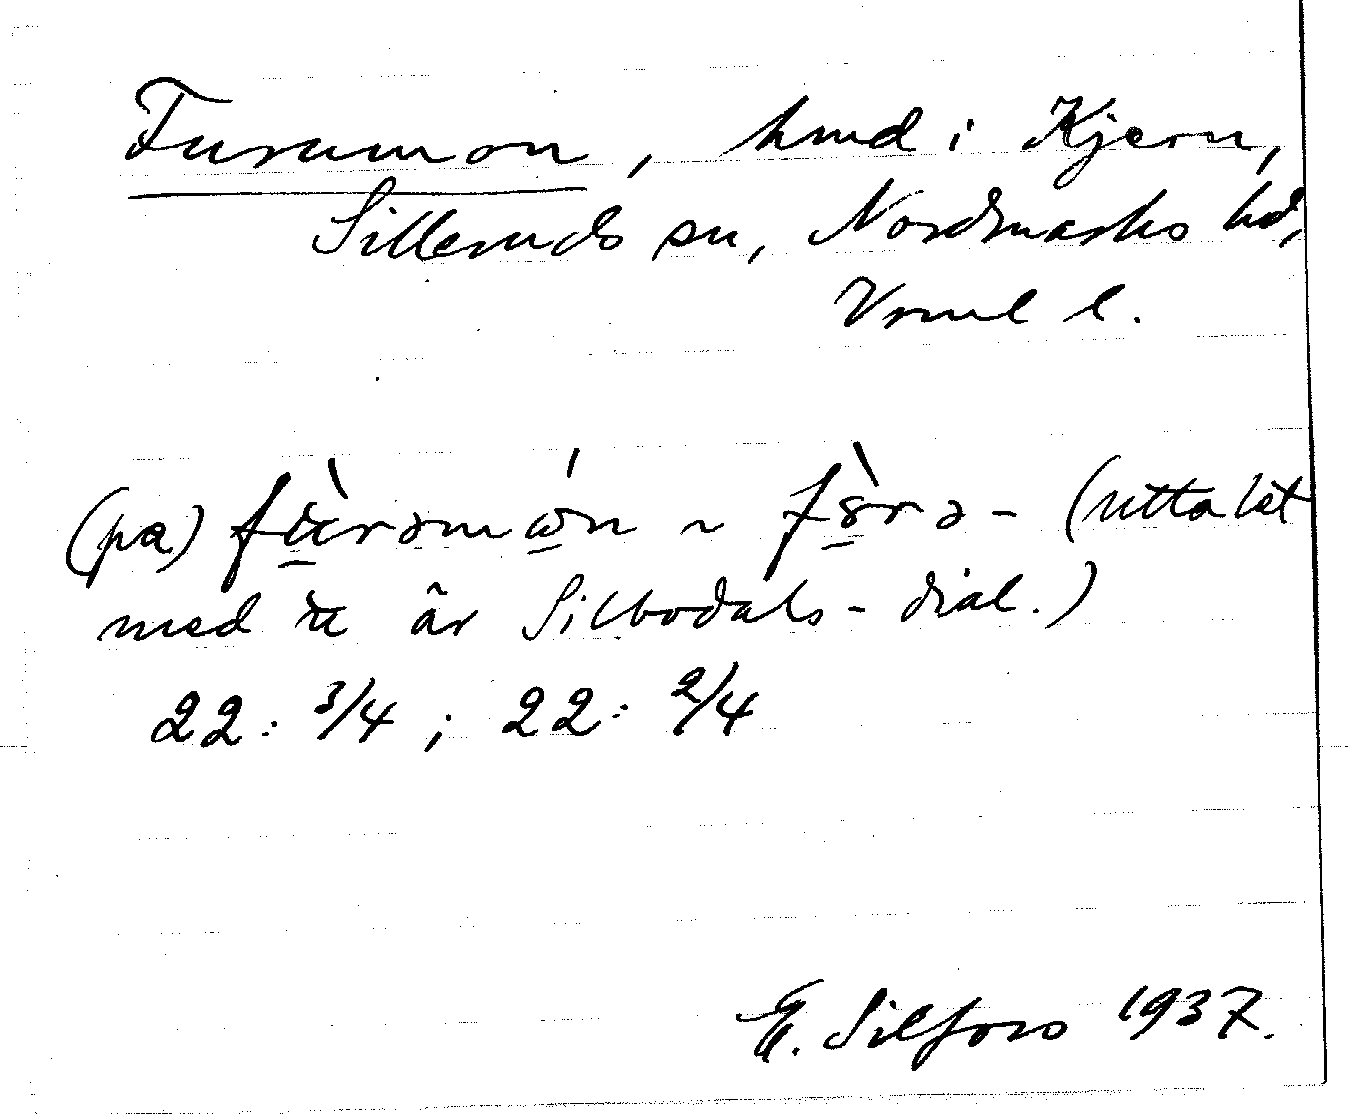 Furumon, hmd i Kjern,
Silleruds sn, Nordmarks hd,
Vrml l.
(pa) fùrəmón ~ fòrə- (uttalet
med u är Silbodals-dial.)
22: 3/4 ; 22: 2/4
E. Silfors 1937.